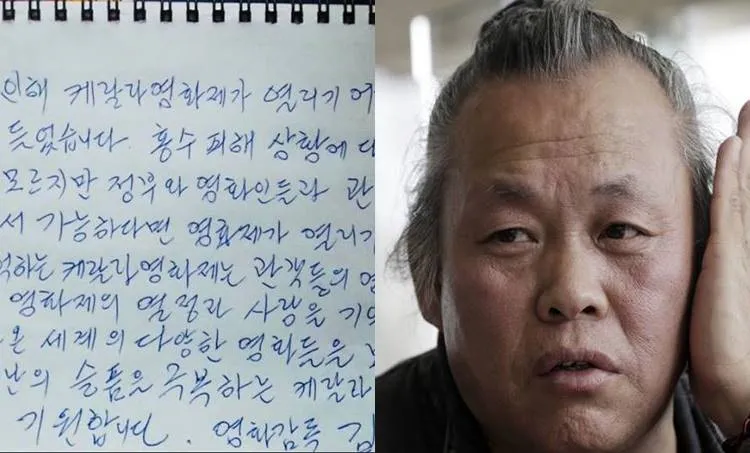 인해 케랄라영화제가 열리기 어
듣었습니다. 홍수 피해 상황에 다
모르지만 정부와 영화인들과 관
서 가능하다면 영화제가 열리기
억하는 케랄라영화제는 관객들의 연
영화제의 열정과 사랑을 기억
온 세계의 다양한 영화들을 보
난의 슬픔을 극복하는 케랄라
기원합니다. 영화감독 김